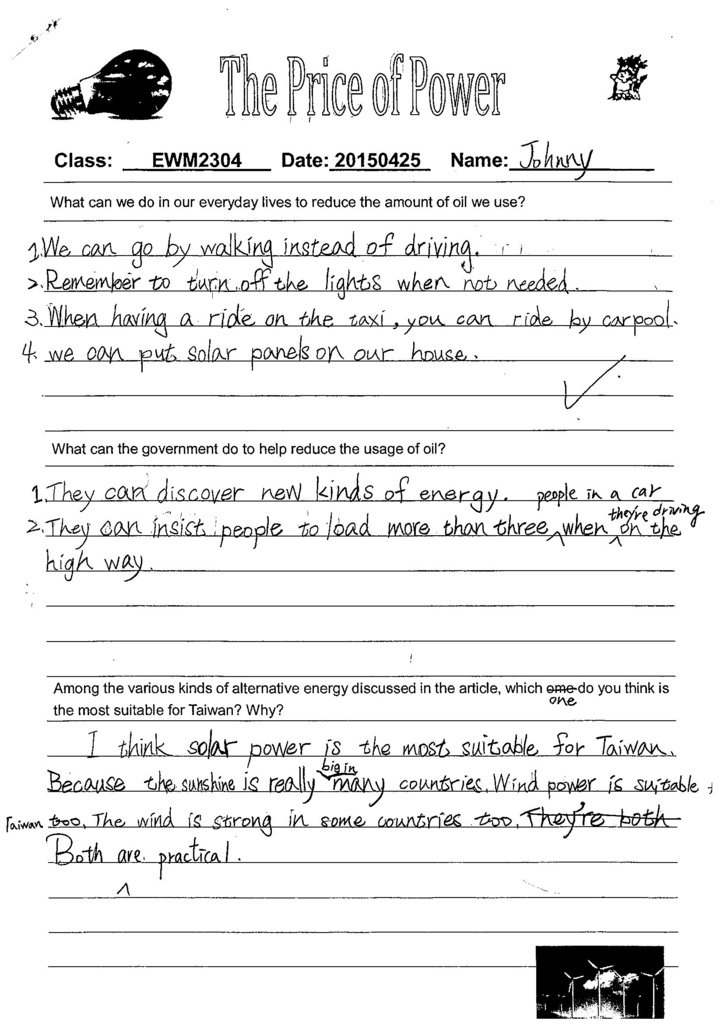 The Price of Power
Class: EWM2304 Date: 20150425 Name: Johnny
What can we do in our everyday lives to reduce the amount of oil we use?
1. We can go by walking instead of driving.
2. Remember to turn off the lights when not needed.
3. When having a ride on the taxi, you can ride by carpool.
4. we can put solar panels on our house.
What can the government do to help reduce the usage of oil?
1. They can discover new kinds of energy.
people in a car
they're driving
2. They can insist people to load more than three when on the
high way.
Among the various kinds of alternative energy discussed in the article, which ome do you think is
one
the most suitable for Taiwan? Why?
I think solar power is the most suitable for Taiwan.
big in
Because the sunshine is really many countries. Wind power is suitable
Taiwan too, The wind is strong in some countries too. They're both
Both are practical.